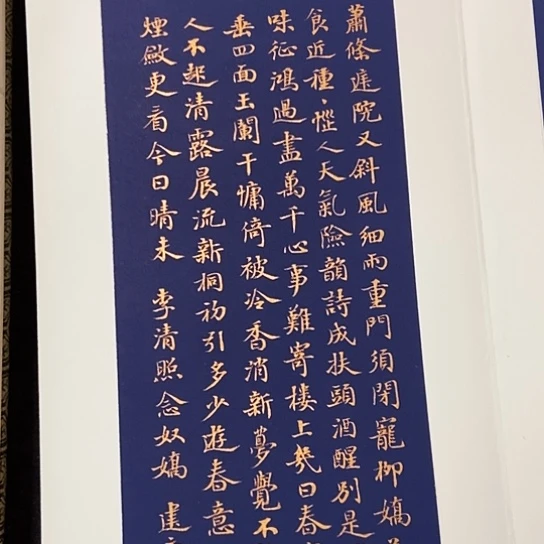 蕭條庭院又斜風細雨重門須閉寵柳嬌
食近種種惱人天氣險韻詩成扶頭酒醒別是
味征鴻過盡萬千心事難寄樓上幾日春
垂四面玉闌干慵倚被冷香消新夢覺不
人不起清露晨流新桐初引多少遊春意
煙斂更看今日晴未 李清照念奴嬌